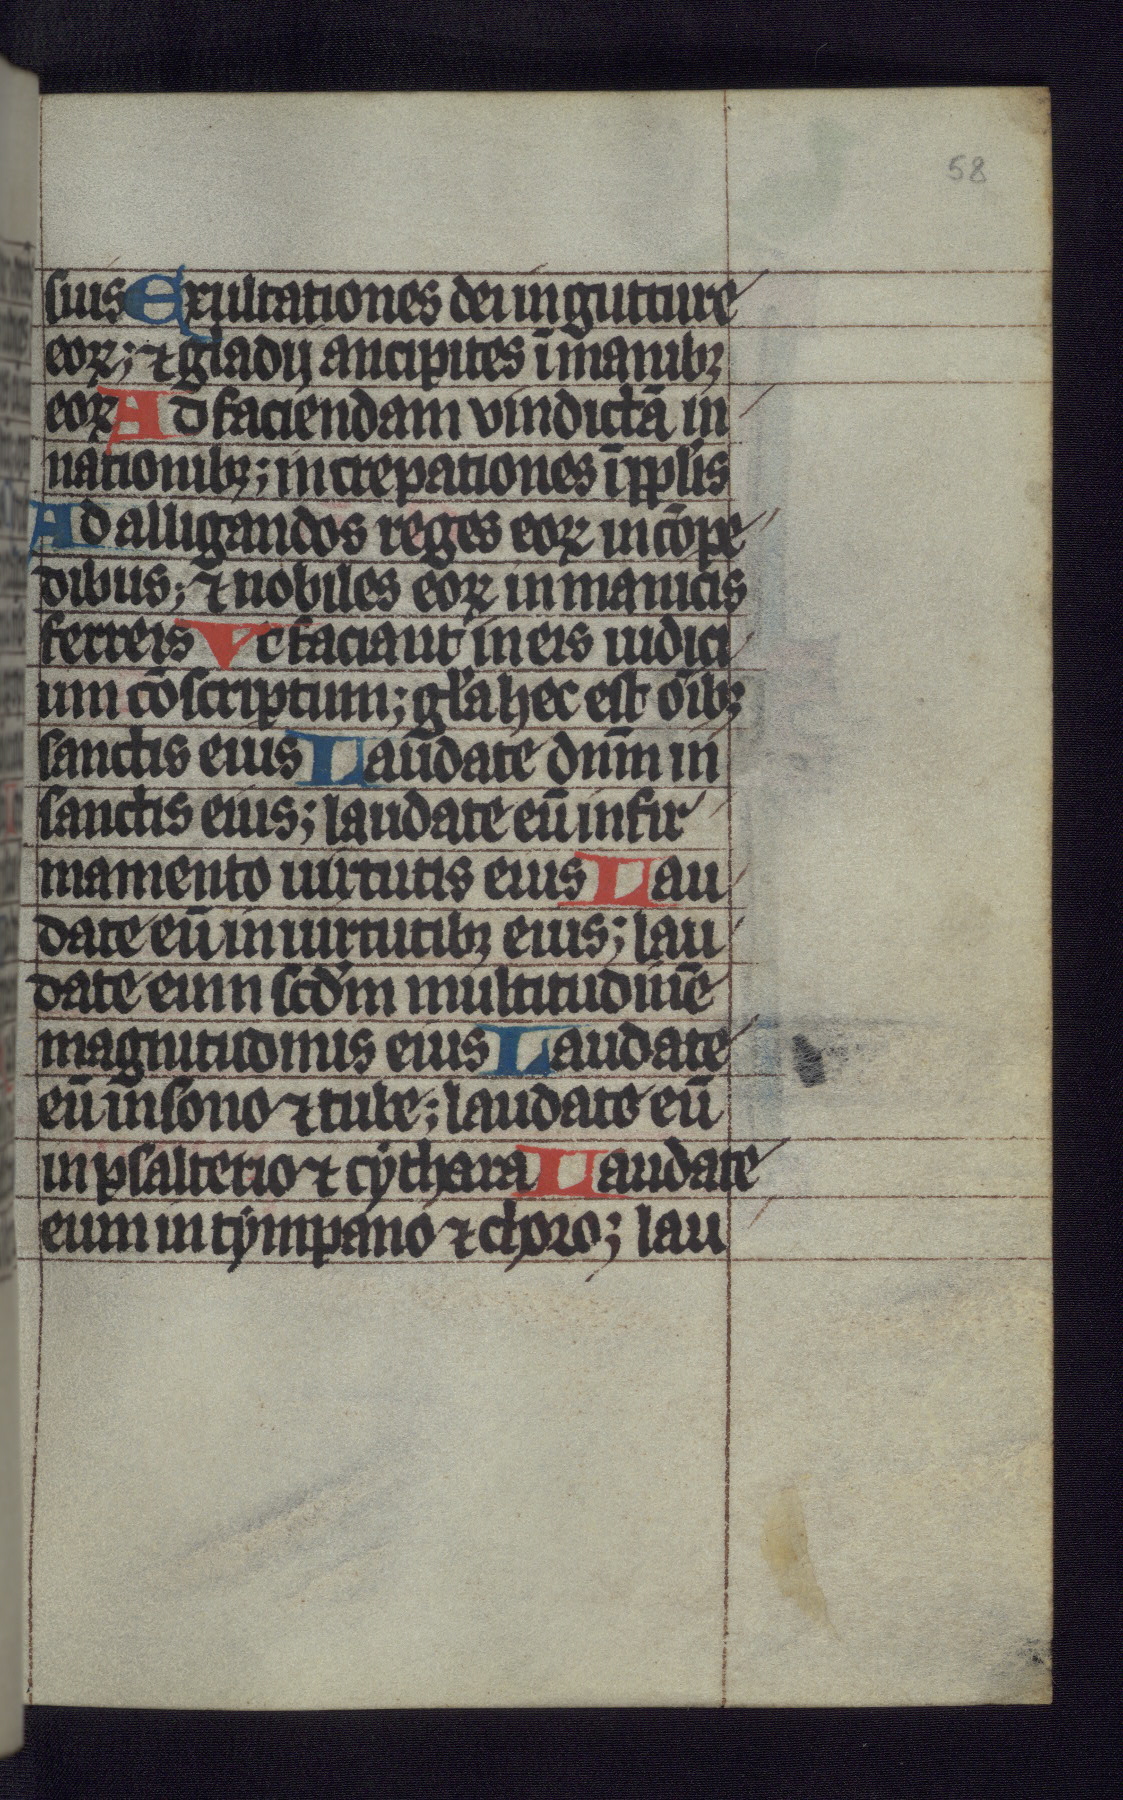 58
suis Exultationes dei in gutture
eoꝝ; ⁊ gladij ancipites ī manibꝫ
eoꝝ Ad faciendam vindictā in
nationibꝫ; increpationes ī pplīs
Ad alligandos reges eoꝝ in cōpe
dibus; ⁊ nobiles eoꝝ in manicis
ferreis Vt faciant in eis iudici
um cōscriptum; gl̄a hec est oībꝫ
sanctis eius Laudate dn̄m in
sanctis eius; laudate eū in fir
mamento uirtutis eius Lau
date eū in uirtutibꝫ eius; lau
date eum scd̄m multitudinē
magnitudinis eius Laudate
eū in sono ⁊ tube; laudate eū
in psalterio ⁊ cythara Laudate
eum in tympano ⁊ choro; lau